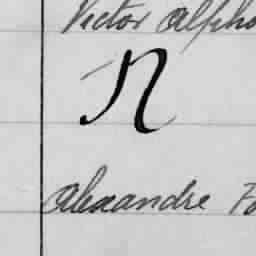 Victor Alpho
N
Alexandre Fa